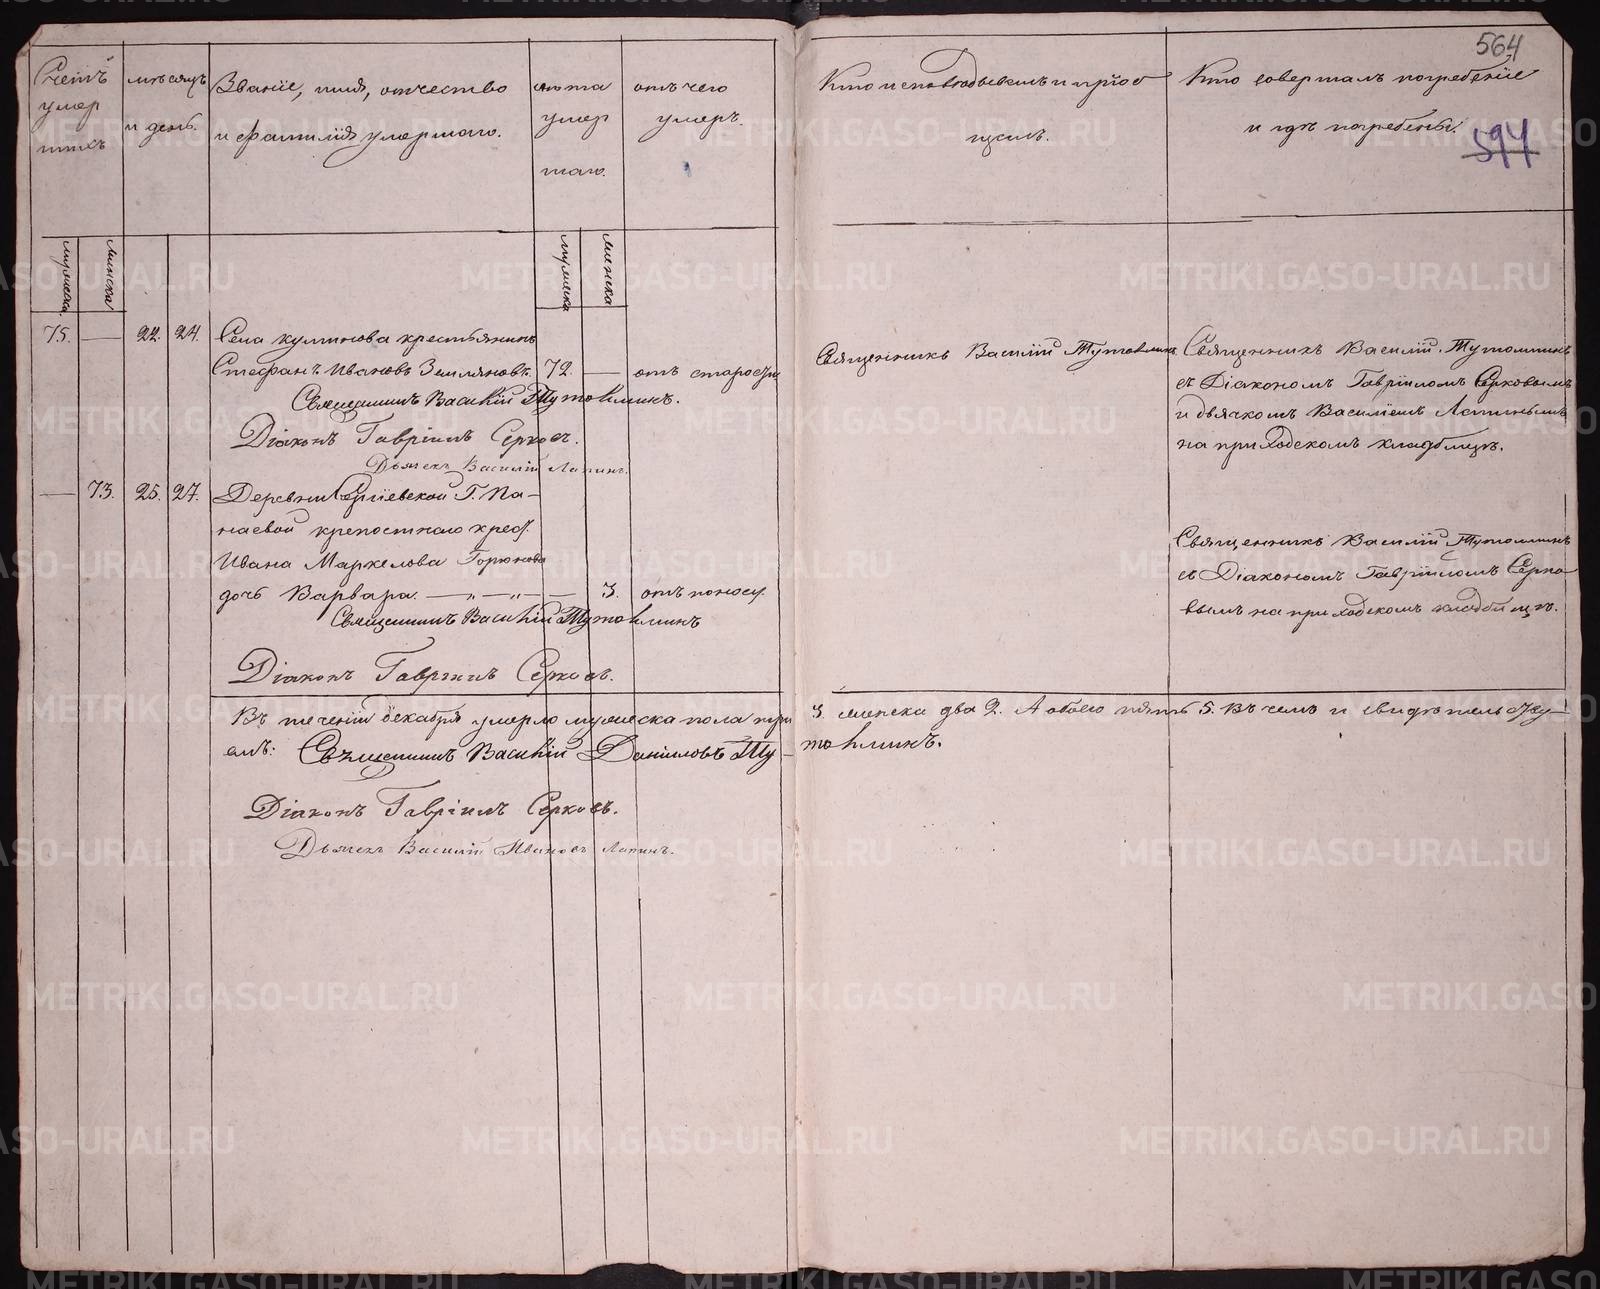 564
594
Счетъ умер шихъ
мѣсяцъ и день.
Званіе, имя, отчество
и фамилія умершаго.
лѣта умер шаго.
отъ чего умеръ.
Кто исповѣдывалъ и пріоб
щилъ.
Кто совершалъ погребеніе
и гдѣ погребены.
мужеска
женска
мужеска
женска
75. — 22. 24. Села куликова крестьянинъ
Стефанъ Ивановъ Земляновъ. 72. — отъ старости
Священникъ Василій Тутолминъ.
Діаконъ Гавріилъ Серковъ.
Дьячекъ Василій Лапинъ.
Священникъ Василій Тутолминъ
Священникъ Василій Тутолминъ
съ Діакономъ Гавріиломъ Серковымъ
и дьячкомъ Василіемъ Лапинымъ
на приходскомъ кладбищѣ.
— 73. 25. 27. Деревни Сергіевской Г. Па-
наевой крепостнаго крест.
Ивана Маркелова Горюнова
дочь Варвара. — „ — „ — 3. отъ поносу
Священникъ Василій Тутолминъ
Діаконъ Гавріилъ Серковъ.
Священникъ Василій Тутолминъ
съ Діакономъ Гавріиломъ Серко-
вымъ на приходскомъ кладбищѣ.
Въ теченіи декабря умерло мужеска пола три 3. женска два 2. А обоего пять 5. Въ чемъ и свидѣтельству-
емъ: Священникъ Василій Даниловъ Ту-толминъ.
Діаконъ Гавріилъ Серковъ.
Дьячекъ Василій Ивановъ Лапинъ.
METRIKI.GASO-URAL.RU